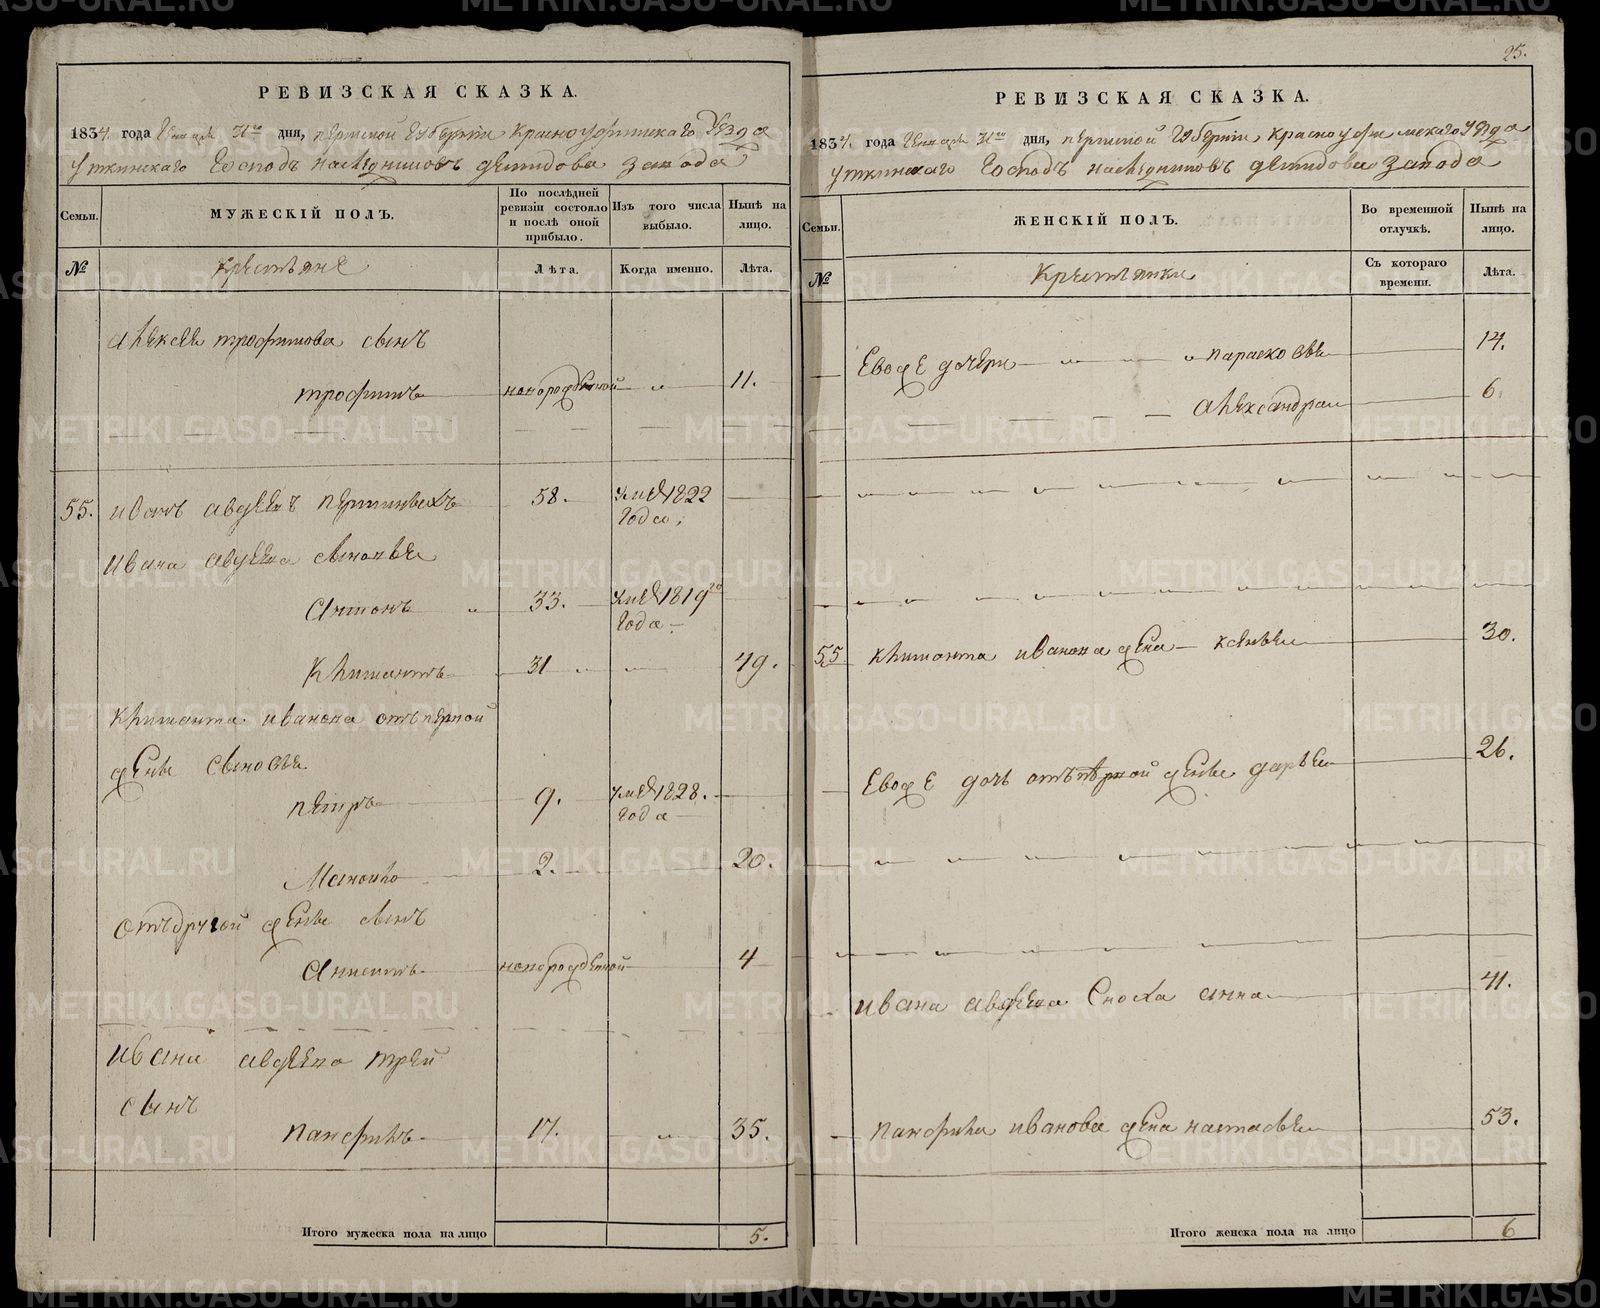 25.
РЕВИЗСКАЯ СКАЗКА.
1834. года Генваря дня, пермской Губернїи Красноуфимскаго Уезда
Уткинскаго Господъ наследниковъ демидова завода
Семьи.
МУЖЕСКІЙ ПОЛЪ.
По послѣдней ревизіи состояло и послѣ оной прибыло.
Изъ того числа выбыло.
Нынѣ на лицо.
№
крестьяне
Лѣта.
Когда именно.
Лѣта.
алексея трофимова сынъ
трофимъ новорожденной 11.
55. иванъ авдеевъ 58. умеръ 1822 года
ивана авдеева сыновья
антонъ 33. умеръ 1819 года
климонтъ 31 49.
климонта иванова отъ первой
жены сыновья
петръ 9. умеръ 1828. года
Мануило 2. 20.
отъ другой жены сынъ
новорожденной 4
ивана авдеева трей
сынъ
панфилъ 17. 35.
Итого мужеска пола на лицо 5.
РЕВИЗСКАЯ СКАЗКА.
1834. года Генваря дня, пермской Губернїи Красноуфимскаго Уезда
Уткинскаго Господъ наследниковъ демидова завода
Семьи.
ЖЕНСКІЙ ПОЛЪ.
Во временной отлучкѣ.
Нынѣ на лицо.
№
Крестьянки
Съ котораго времени.
Лѣта.
Евоже дочери парасковья 14.
александра 6.
55 климонта иванова жена ксенья 30.
Евоже дочь отъ первой жены дарья 26.
ивана авдеева сноха анна 41.
панфила иванова жена настасья 53.
Итого женска пола на лицо 6
METRIKI.GASO-URAL.RU